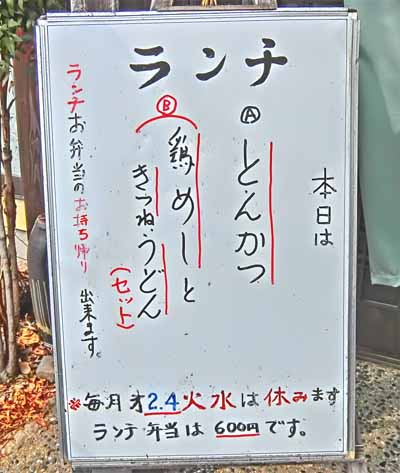 ランチ
本日は
Ⓐ とんかつ
Ⓑ 鶏めしと
きつねうどん
(セット)
ランチお弁当のお持ち帰り出来ます。
※毎月才2.4火水は休みます
ランチ弁当は600円です。